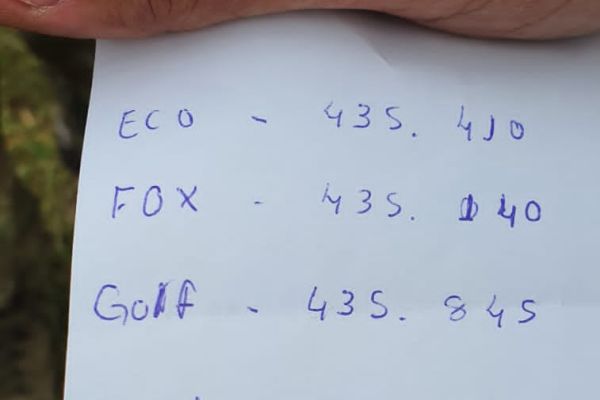 ECO - 435. 410
FOX - 435. 040
Golf - 435. 845